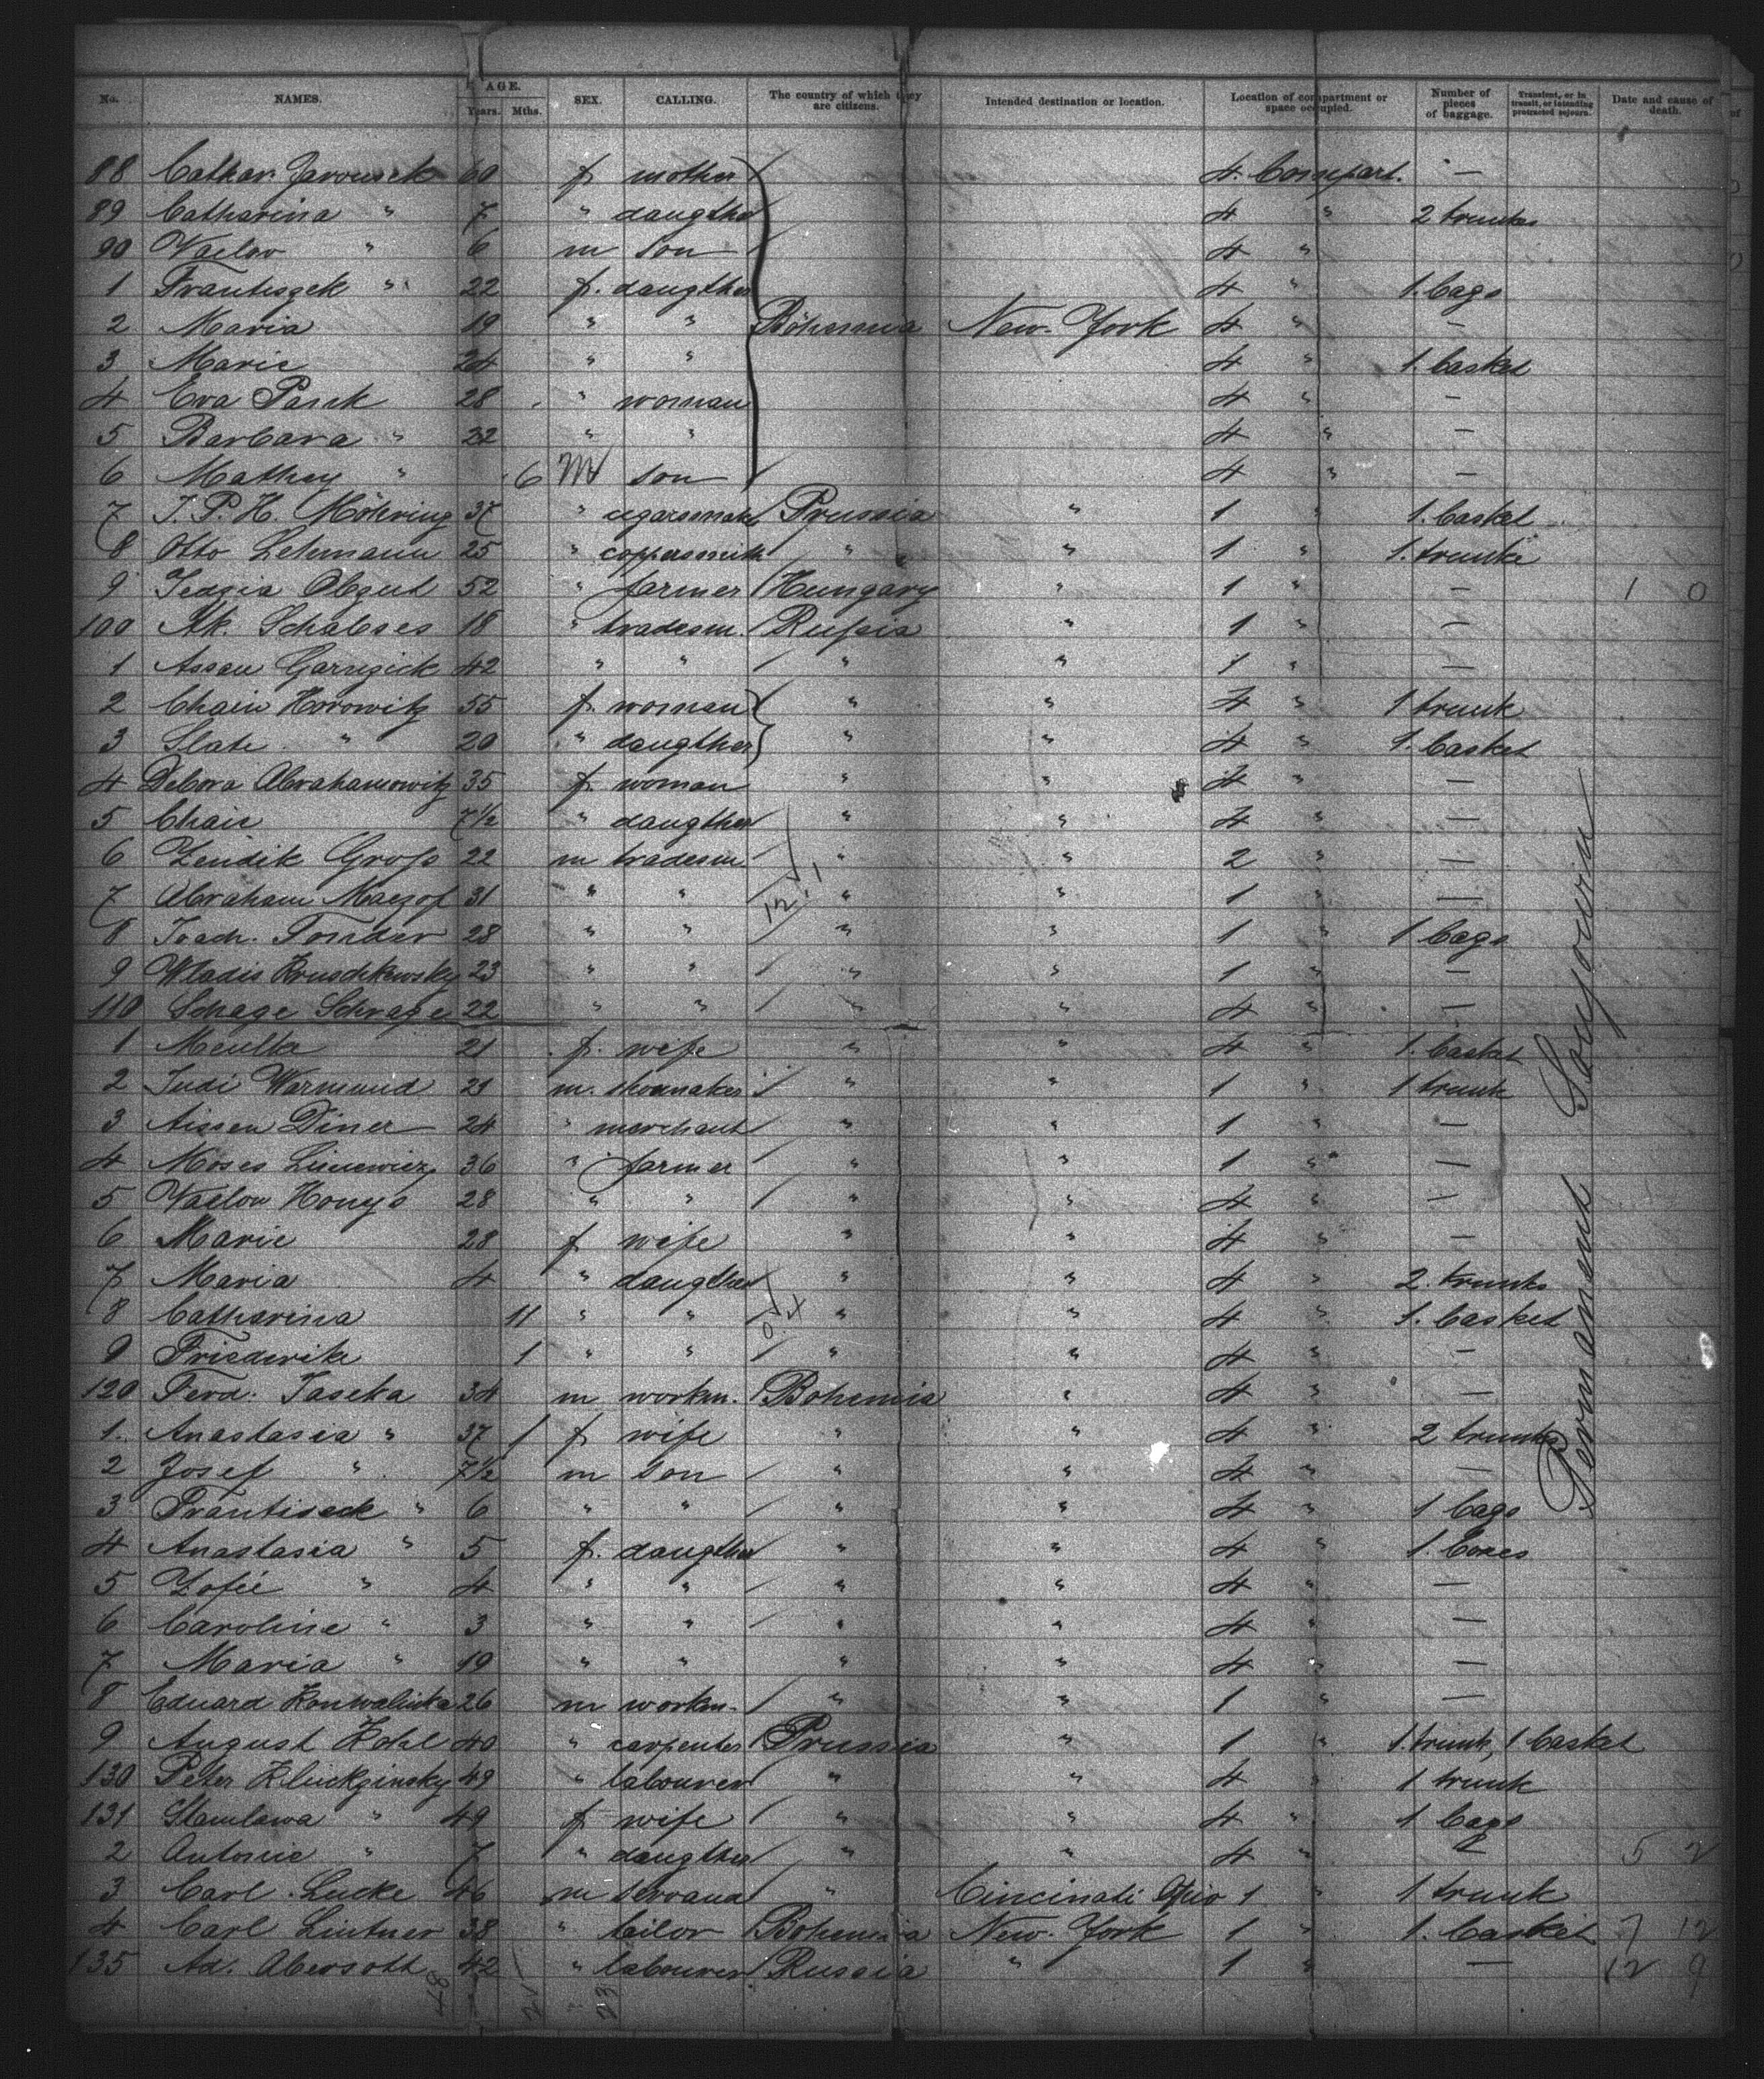 No. NAMES. AGE. Years. Mths. SEX. CALLING. The country of which they are citizens. Intended destination or location. Location of compartment or space occupied. Number of pieces of baggage. Transient, or in transit, or intending protracted sojourn. Date and cause of death.
88 Cathar. Jarousek 60 f mother 4. Compart. —
89 Catharina " 7 " daugther 4 " 2 trunks
90 Vaclav " 6 m son 4 "
1 Frantiszek " 22 f. daugther 4 " 1. bags
2 Maria 19 " " Böhemia New-York 4 " —
3 Marie 24 " " 4 " 1. basket
4 Eva Pasck 28 " woman 4 " —
5 Barbara " 22 " " 4 " —
6 Mathey " 6 M son 4 " —
7 J. P. H. Möhring 37 " cigarsmak Prussia " 1 " 1. basket
8 Otto Lehmann 25 " coppersmith " " 1 " 1. trunke
9 Olgut 52 " farmer Hungary " 1 " — 1 0
100 Ak. Schabses 18 " tradesm. Russia " 1 " —
1 Assen 42 " " " " 1 " —
2 Chaim Horowitz 55 f woman " " 4 " 1 trunk
3 Slate " 20 " daugther " " 4 " 1. basket
4 Debora Abrahamowitz 35 f woman " " 4 " —
5 Chaie 7½ " daugther " " 4 " —
6 Zendik Gross 22 m tradesm " " 2 " —
7 Abraham 31 " " " " 1 " —
8 28 " " " " 1 " 1 bags
9 Wladis Kruschkewsky 23 " " " " 1 " —
110 Schage Schrage 22 " " " " 4 " —
1 21 f. wife " " 4 " 1. basket
2 Judi Warmund 21 m. shoemaker " " 1 " 1 trunk
3 Aissen Diner 24 " merchant " " 1 " —
4 Moses 36 " farmer " " 1 " —
5 28 " " " " 4 " —
6 Marie 28 f wife " " 4 " —
7 Maria 4 " daugther " " 4 " 2. trunks
8 Catharina 11 " " " " 4 " 1. basket
9 Friederike 1 " " " " 4 " —
120 Ferd. Taseka 34 m workm. Bohemia " 4 " —
1. Anastasia " 37 f wife " " 4 " 2 trunks
2 Josef " 7½ m son " " 4 " —
3 Frantiseck " 6 " " " " 4 " 1 bags
4 Anastasia " 5 f. daugther " " 4 " 1. boxes
5 Zofie " 4 " " " " 4 " —
6 Caroline " 3 " " " " 4 " —
7 Maria " 19 " " " " 4 " —
8 Eduard 26 m workm. " " 1 " —
9 August Kohl 40 " carpenter Prussia " 1 " 1. trunk, 1 basket
130 Peter 49 " labourer " " 4 " 1 trunk
131 Stanlawa " 49 f wife " " 4 " 1 bags
2 Antonie " 7 " daugther " " 4 " — 5 2
3 Carl Lucke 46 m servand " Cincinati Ohio 1 " 1 trunk
4 Carl Lintner 38 " tailor Bohemia New-York 1 " 1. basket 7 12
135 Ad. Abersoth 42 " labourer Russia " 1 " — 12 9
Permanent Soujourin